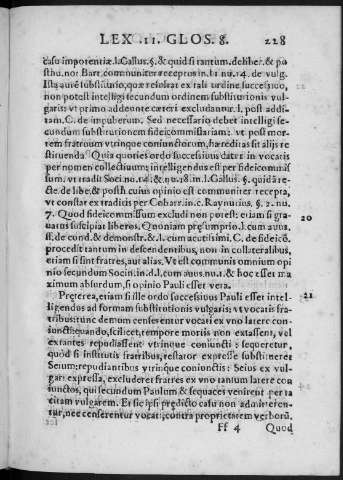 LEX .11. GLOS. 8. 228
casu impotentiæ. l. Gallus. §. & quid si tantum. de liber. & po
sthu. not Bart. communiter receptus in l. 1 nu. 14. de vulg.
Ista autē substitutio, quæ resoluit ex tali ordine successiuo,
non potest intelligi secundum ordinem substitutionis vul-
garis: vt primo ad eonte cæteri excludantur. l. post addi
tam. C. de impuberum. Sed necessario debet intelligi se-
cundum substitutionem fideicommissariam: vt post mor
tem fratruum vtrinque coniunctorum, hæreditas sit alijs re
stituenda. Quia quoties ordo successiuus datur in vocatis
per nomen collectiuum; intelligendus est per fideicommis
sum. vt tradit Soci. no. 14. & nu. 18. in l. Gallus. §. quidā re-
cte. de libe. & posth. cuius opinio est communiter recepta,
vt constat ex traditis per Cobarr. in c. Raynutius. §. 2. nu.
7. Quod fideicommissum excludi non potest: etiam si gra-
uatus suscipiat liberos. Quoniam presumptio. l. cum auus.
ff. de cond. & demonstr. & l. cum acutissimi. C. de fideicō.
procedit tantum in descendentibus, non in collateralibus,
etiam si sint fratres, aut alias. Vt est communis omnium opi
nio secundum Socin. in d. l. cum auus. nu. 1. & hoc esset ma
ximum absurdum, si opinio Pauli esset vera.
20
Pręterea, etiam si ille ordo successiuus Pauli esset intel-
ligendus ad formam substitutionis vulgaris: vt vocatis fra
tribus: tunc demum censerentur vocati ex vno latere con-
iuncti: quando, scilicet, tempore mortis non extassent, vel
extantes repudiassent vtrinque coniuncti: sequeretur,
quod si institutis fratribus, testator expresse substitueret
Seium; repudiantibus vtrinque coniunctis: Seius ex vul-
gari expressa, excluderet fratres ex vno tantum latere con
iunctos, qui secundum Paulum & sequaces venirent per ta
citam vulgarem. Et sic ipsi prędicto casu non admitteren-
tur, nec censerentur vocati; contra proprietatem verborū.
21
Ff 4 Quod